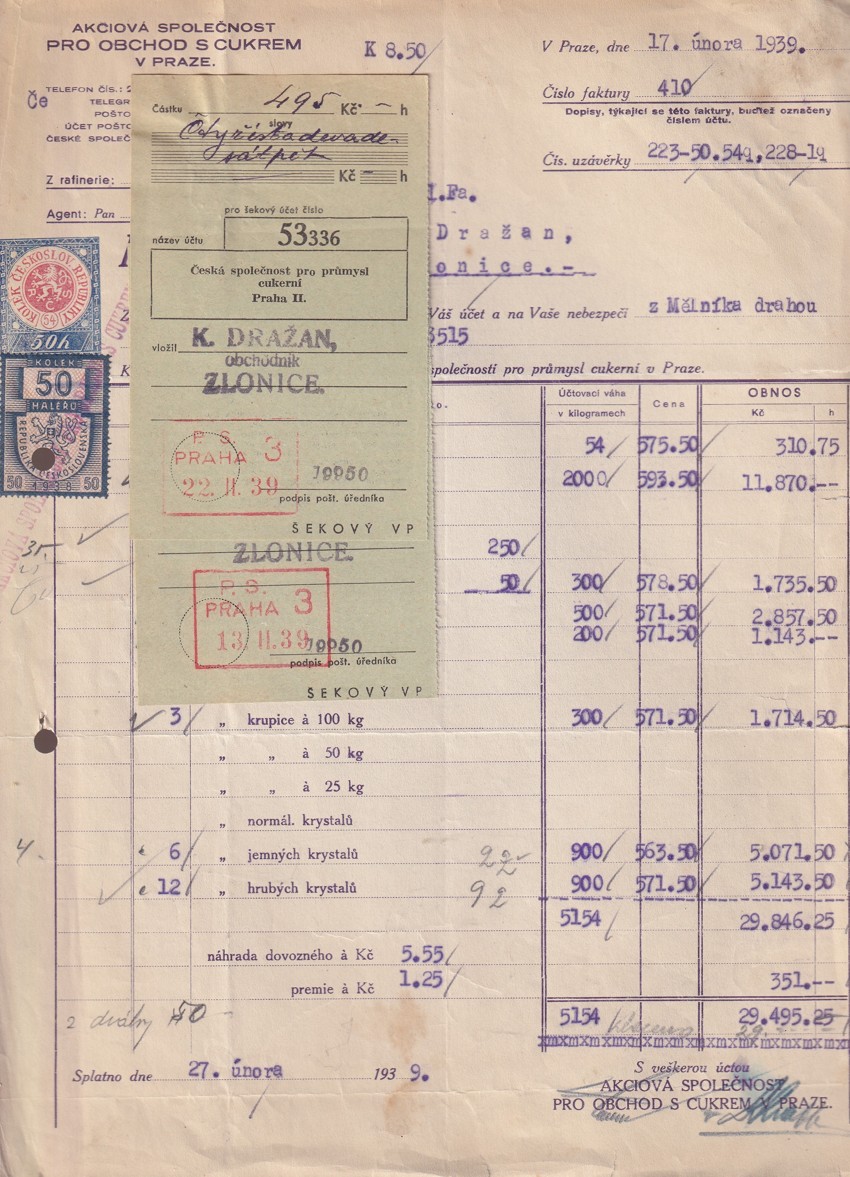 AKCIOVÁ SPOLEČNOST
PRO OBCHOD S CUKREM
V PRAZE.
K 8.50/
V Praze, dne 17. února 1939.
Číslo faktury 410/
Dopisy, týkající se této faktury, buďtež označeny
číslem účtu.
Čís. uzávěrky 223-50.54q,228-1q
TELEFON ČÍS.: 2
Če
TELEGR
POŠTO
ÚČET POŠTO
ČESKÉ SPOLEČ
Z rafinerie:
Agent: Pan
Částku 495 Kč - h
slovy
Čtyřistadevade-
sátpět
Kč - h
pro šekový účet číslo
název účtu 53336
Česká společnost pro průmysl
cukerní
Praha II.
vložil K. DRAŽAN,
obchodník
ZLONICE.
P. S.
PRAHA 3
22. II. 39
19950
podpis pošt. úředníka
ŠEKOVÝ VP
ZLONICE.
P. S.
PRAHA 3
13. II. 39
19950
podpis pošt. úředníka
ŠEKOVÝ VP
KOLEK ČESKOSLOV REPUBLIKY
(54)
50h
KOLEK
50
HALÉŘŮ
REPUBLIKA ČESKOSLOVENSKÁ
50 1938 50
Fa.
Dražan,
onice.-
Váš účet a na Vaše nebezpečí z Mělníka drahou
3515
společnosti pro průmysl cukerní v Praze.
Účtovací váha
v kilogramech
Cena
OBNOS
Kč h
54/ 575.50/ 310.75
2000/ 593.50/ 11.870.--
250/
50/ 300/ 578.50/ 1.735.50
500/ 571.50/ 2.857.50
200/ 571.50/ 1.143.--
3/ „ krupice à 100 kg 300/ 571.50/ 1.714.50
„ „ à 50 kg
„ „ à 25 kg
„ normál. krystalů
4. 6/ „ jemných krystalů 22 900/ 563.50/ 5.071.50
12/ „ hrubých krystalů 92 900/ 571.50/ 5.143.50
5154/ 29.846.25
náhrada dovozného à Kč 5.55/
premie à Kč 1.25/ 351.--
5154 29.495.25
Splatno dne 27. února 1939.
S veškerou úctou
AKCIOVÁ SPOLEČNOST
PRO OBCHOD S CUKREM V PRAZE.